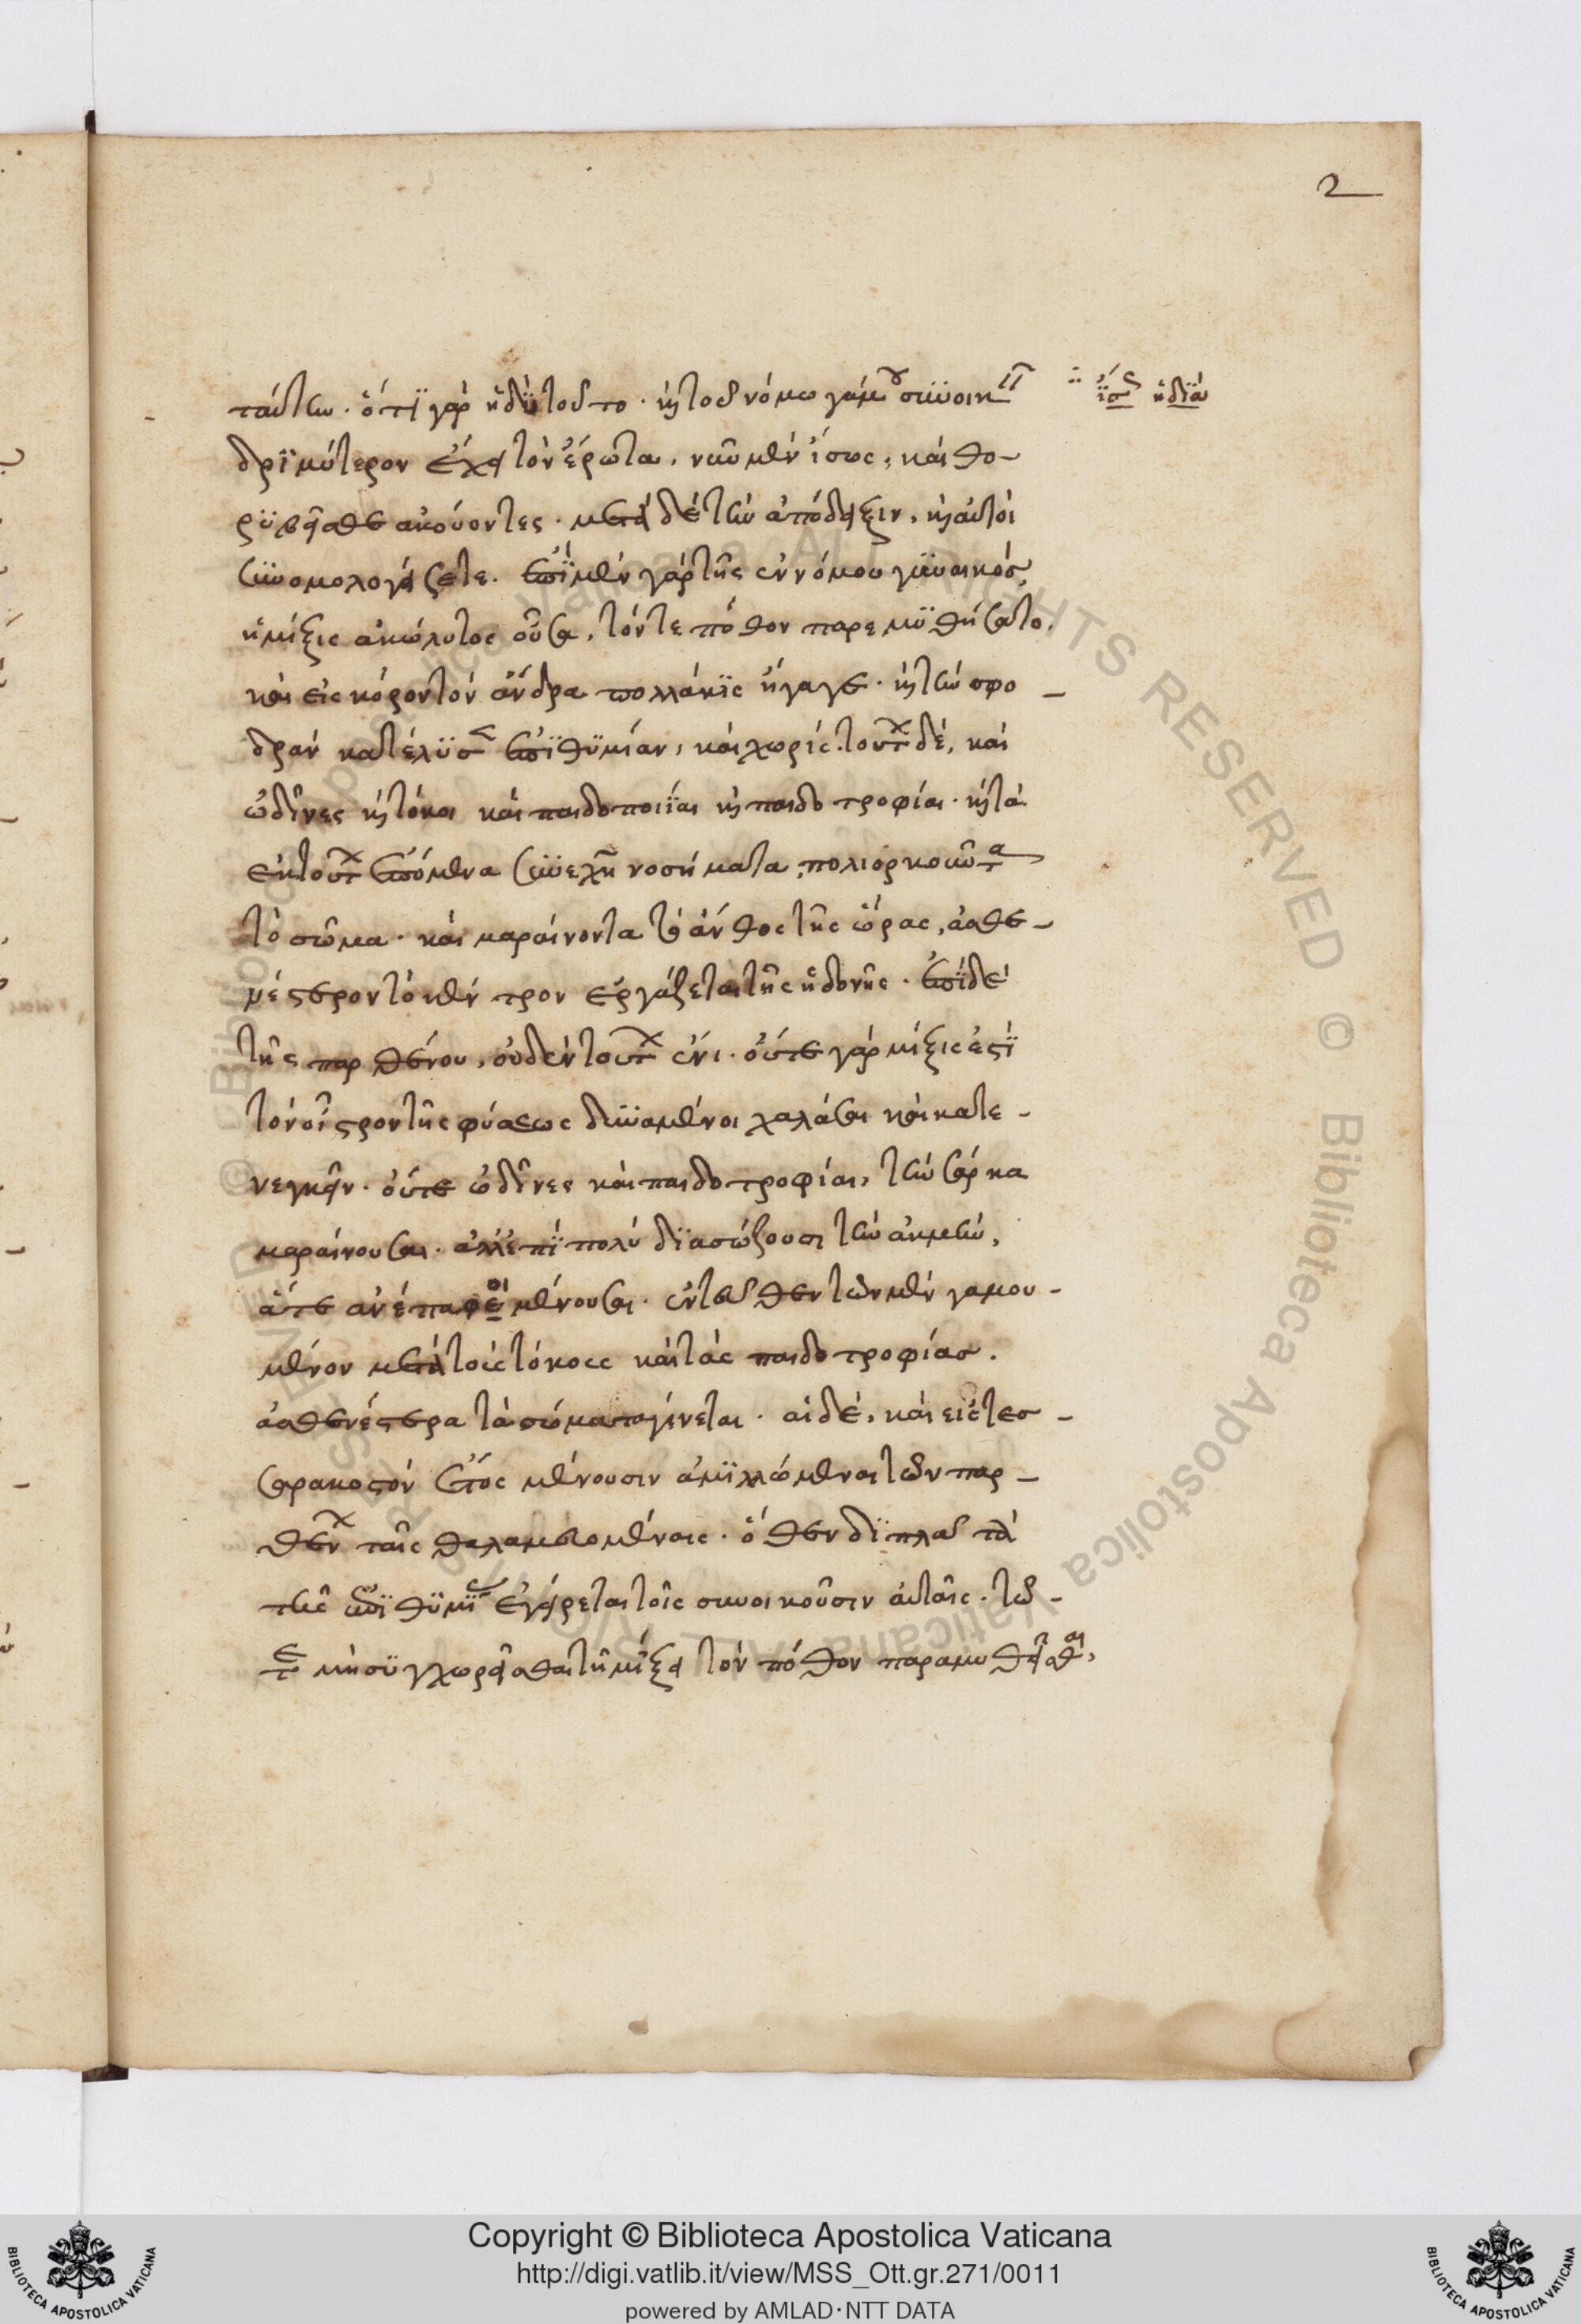 2
ταύτην. ὅτϊ γὰρ ἡδὺ τοῦτο. καὶ τοῦ νόμω γάμου συνοικεῖν
ἴσως ἡδίω
δριμύτερον ἔχει τὸν ἔρωτα, νῦν μὲν ἴσως, καὶ θο-
ρϋβεῖσθε ἀκούοντες. μετὰ δὲ τὴν ἀπόδειξιν, καὶ αὐτοὶ
συνομολογήσετε. ἐπϊ μὲν γὰρ τῆς ἐννόμου γυναικός,
ἡ μίξις ἀκώλυτος οὖσα, τόν τε πόθον παρεμϋθήσατο,
καὶ εἰς κόρον τὸν ἄνδρα πολλάκϊς ἤγαγε. καὶ τὴν σφο-
δρὰν κατέλϋσεν ἐπϊθϋμίαν, καὶ χωρὶς τούτων δὲ, καὶ
ὠδῖνες καὶ τόκοι καὶ παιδοποιΐαι καὶ παιδοτροφίαι. καὶ τὰ
ἐκ τούτων ἑπόμενα συνεχῆ νοσήματα, πολιορκοῦντα
τὸ σῶμα. καὶ μαραίνοντα τὸ ἄνθος τῆς ὥρας, ἀσθε-
νέστερον τὸ κέντρον ἐργάζεται τῆς ἡδονῆς. ἐπὶ δὲ
τῆς παρθένου, οὐδὲν τούτων ἔνι. οὔτε γὰρ μίξις ἐστϊ
τὸν οἶστρον τῆς φύσεως δυναμένοι χαλάσαι καὶ κατε-
νεγκεῖν. οὔτε ὠδῖνες καὶ παιδοτροφίαι, τὴν σάρκα
μαραίνουσαι. ἀλλ' ἐπὶ πολὺ δϊασώζουσι τὴν ἀκμὴν,
ἅτε ἀνέπαφοι μένουσαι. ἐντεῦθεν τῶν μὲν γαμου-
μένον μετὰ τοὶς τόκοις καὶ τὰς παιδοτροφίας.
ἀσθενέστερα τὰ σώματα γίνεται. αἱ δὲ, καὶ εἰς τεσ-
σρακοστὸν ἔτος μένουσιν ἀμϊλλώμεναι τῶν παρ-
θένων ταῖς θαλαμευομέναις. ὅθεν δϊπλᾶ τὰ
τῆς ἐπϊθϋμίας ἐγείρεται τοῖς συνοικοῦσιν αὐταῖς. τῶ-
τε μὴ συγχωρεῖσθαι τῇ μίξει τὸν πόθον παραμυθεῖσθαι,
Copyright © Biblioteca Apostolica Vaticana
http://digi.vatlib.it/view/MSS_Ott.gr.271/0011
powered by AMLAD·NTT DATA